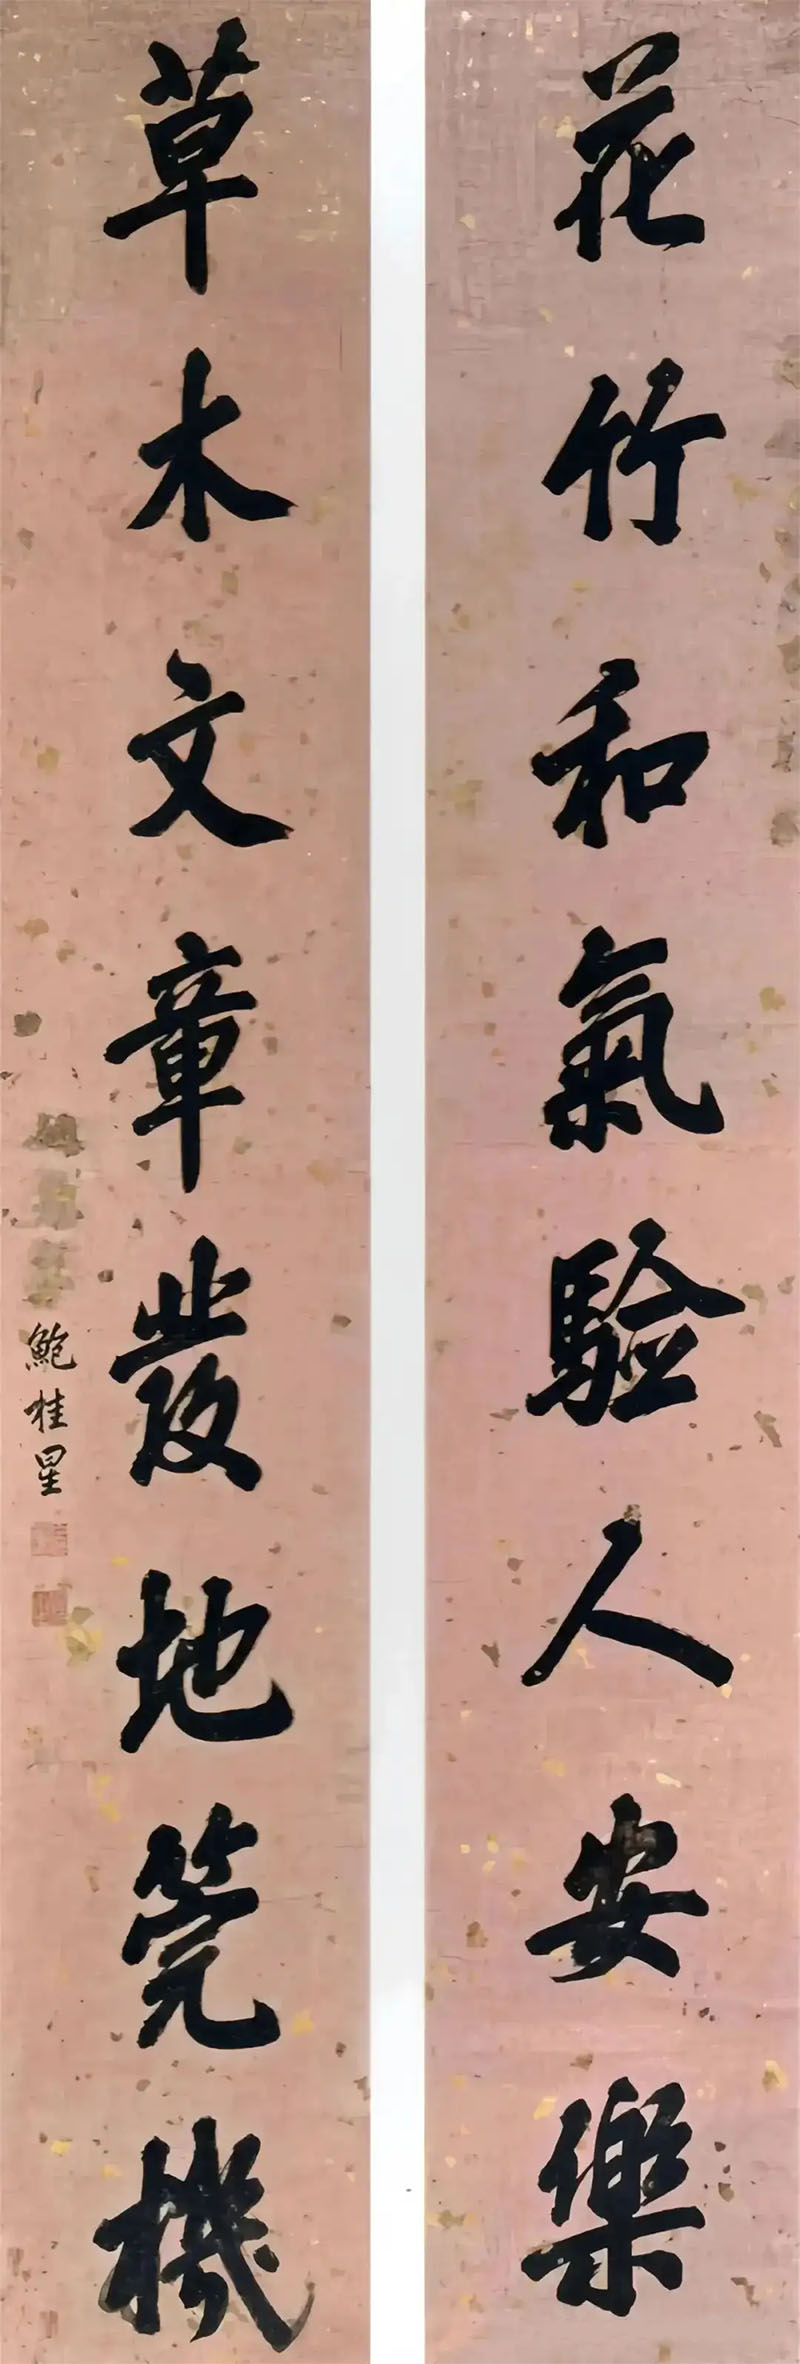 花竹和氣驗人安樂
草木文章發地筦機
鮑桂星